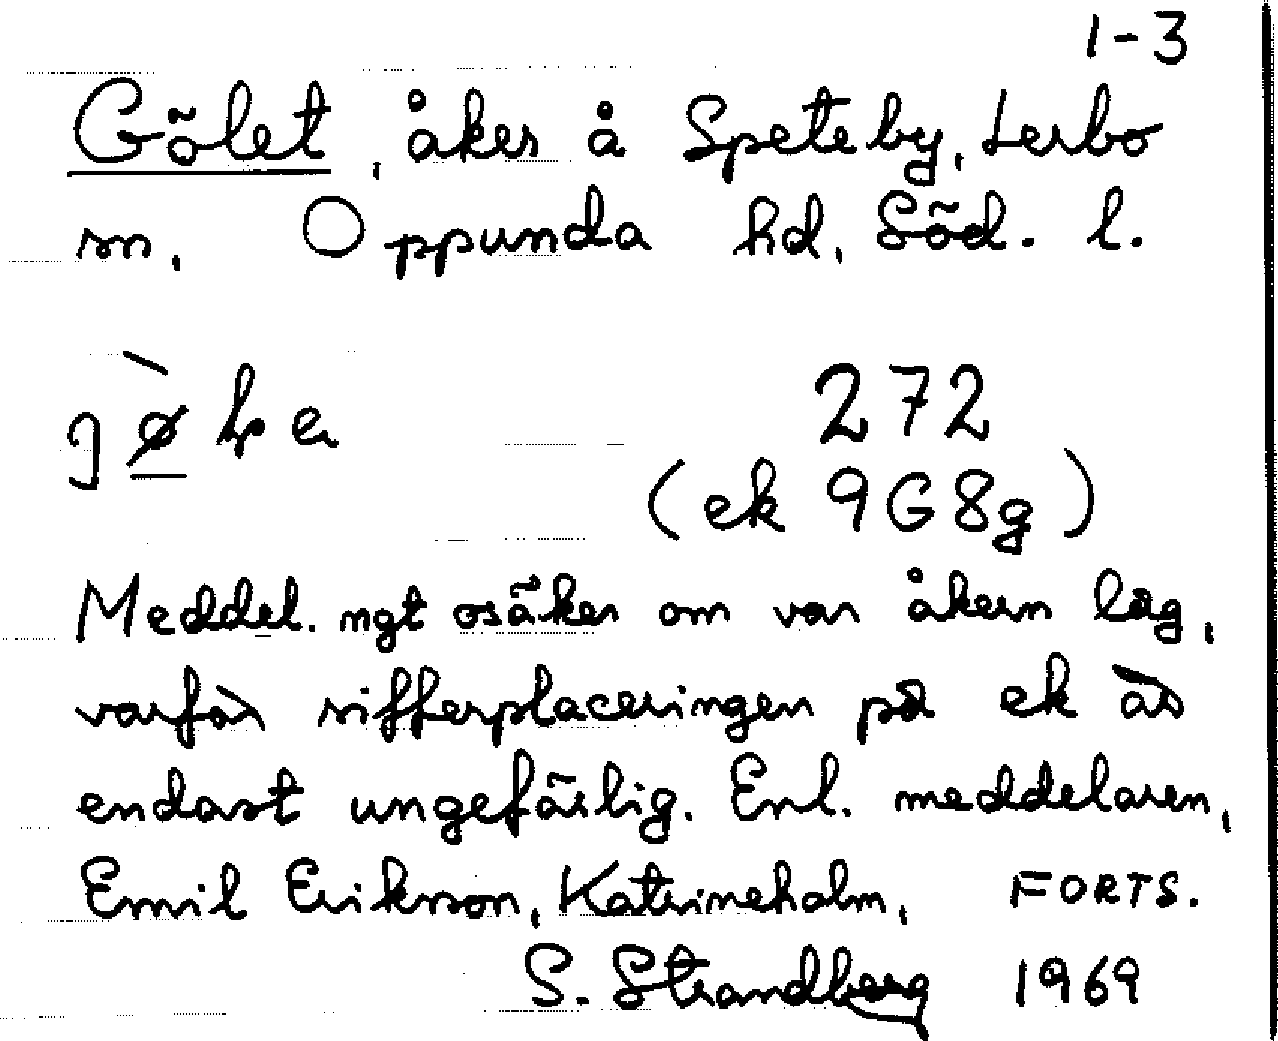 1-3
Gölet, åker å Speteby, Lerbo
sn, Oppunda hd, Söd. l.
272
(ek 9G8g)
Meddel. ngt osäker om var åkern låg,
varför sifferplaceringen på ek är
endast ungefärlig. Enl. meddelaren,
Emil Erikson, Katrineholm, FORTS.
S. Strandberg 1969